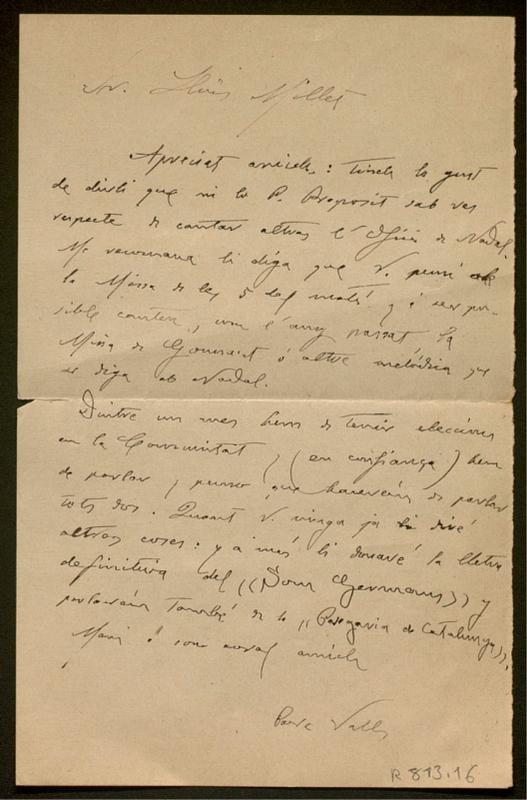 Sr. Lluis Millet
Apreciat amich: Tinch lo gust
de dirli que ni lo P. Preposit sab res
respecte de cantar altres l' Ofici de Nadal.
Me recomana li diga que V. pensi ab
la Missa de les 5 del matí y á ser po-
sible canten, com l' any passat la
Missa de Gounod ó altre melódica que
se diga ab Nadal.
Dintre un mes hem de tenir eleccions
en la Comunitat y (en confiança) hem
de parlar y penso que haurém de parlar
tots dos. Quant V. vinga ja li diré
altres coses: y a més li donaré la lletra
definitiva del "Dous Germans" y
parlarém també de lo "Pregaria de Catalunya".
Mani á son coral amich
Pare Valls
R 813.16